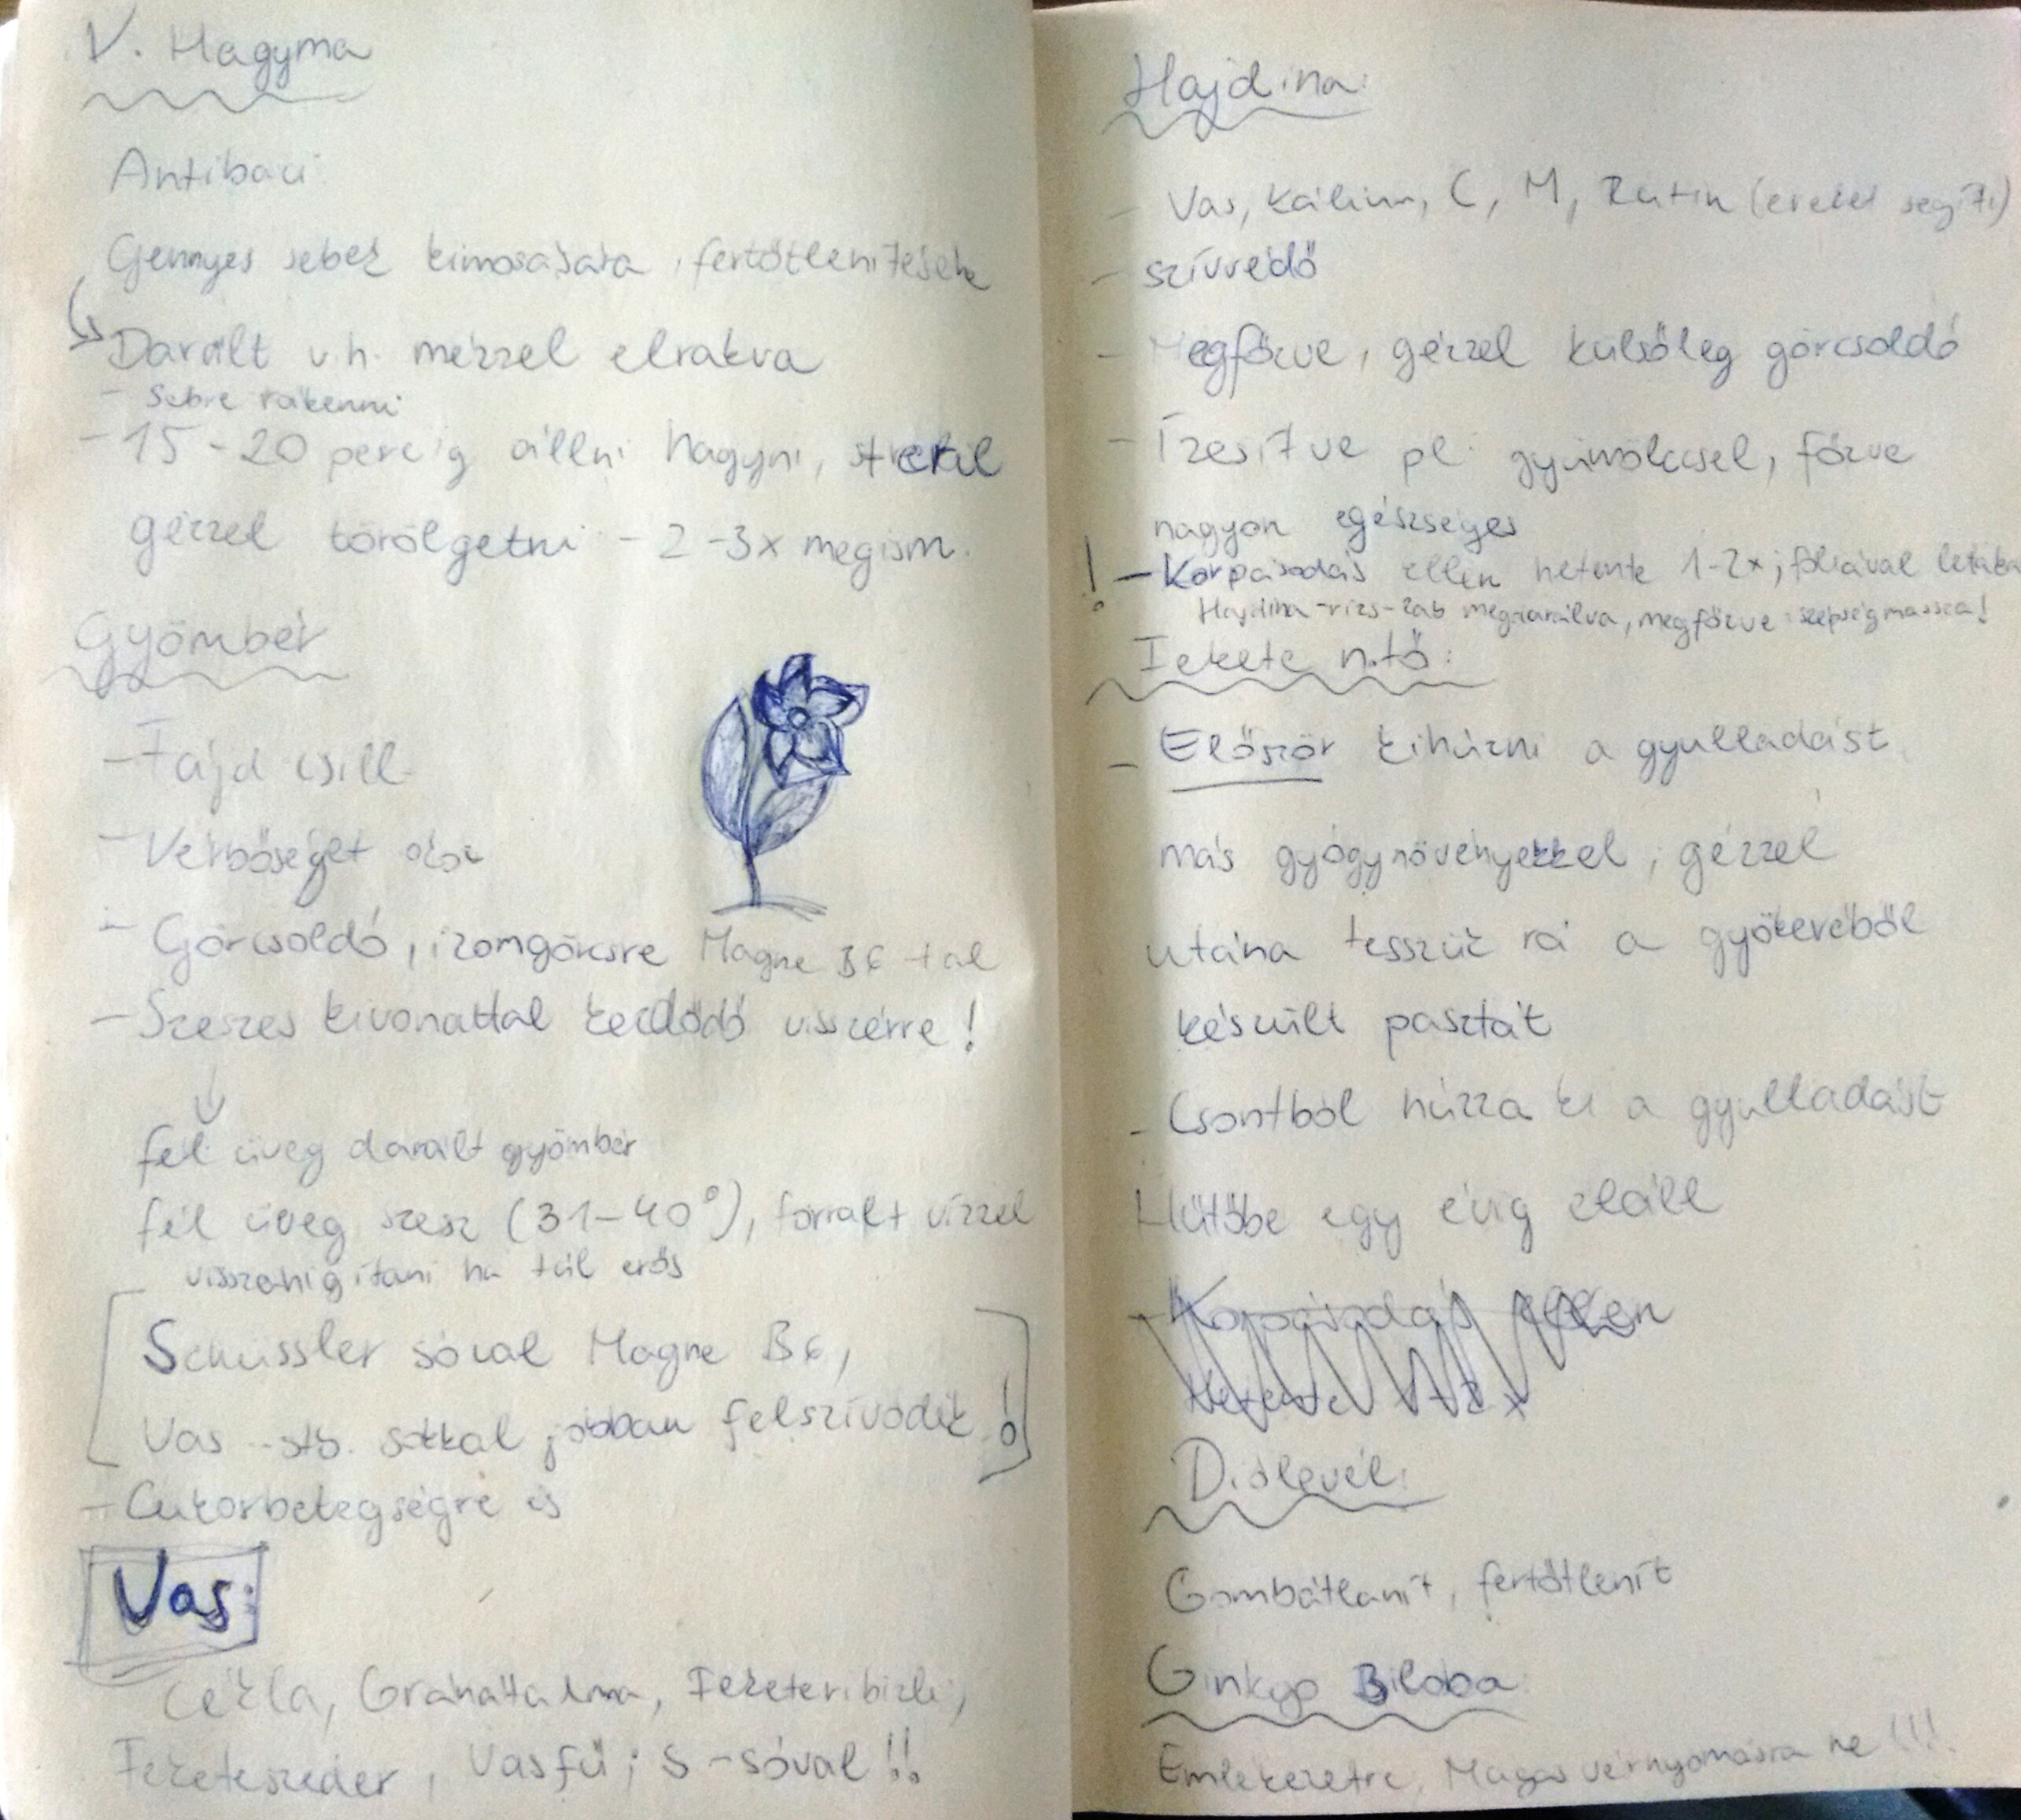 V. Hagyma
Antibaci
Gennyes sebek kimosására, fertőtlenítésére
Darált v.h. mézzel elrakva
- Sebre rákenni
- 15-20 percig állni hagyni, steril
gézzel törölgetni - 2-3x megism.
Gyömbér
- Fájd csill
- Vérbőséget okoz
- Görcsoldó, izomgörcsre Magne B6 -tal
- Szeszes kivonattal kezdődő visszérre!
fél üveg darált gyömbér
fél üveg szesz (31-40°), forralt vízzel
visszahigítani ha túl erős
Schüssler sóval Magne B6,
Vas -stb. sokkal jobban felszívódik!
- Cukorbetegségre is
Vas:
Cékla, Gránátalma, Feketeribizli,
Feketeszeder, Vasfű; S-sóval!!
Hajdina:
- Vas, kálium, C, M, Rutin (ereket segíti)
- szívvédő
- Megfőzve, gézzel külsőleg görcsoldó
- Ízesítve pl: gyümölccsel, főzve
nagyon egészséges
! - Korpásodás ellen hetente 1-2x; fóliával letakar
Hajdina-rizs-zab megdarálva, megfőzve: szépségmassza!
Fekete n.tő:
- Először kihúzni a gyulladást
más gyógynövényekkel, gézzel
utána tesszük rá a gyökeréből
készült pasztát
- Csontból húzza ki a gyulladást
Hűtőbe egy évig eláll
Korpásodás ellen
Hetente 1-2x
Diólevél:
Gombátlanít, fertőtlenít
Ginkgo Biloba:
Emlékezetre, Magas vérnyomásra ne!!!